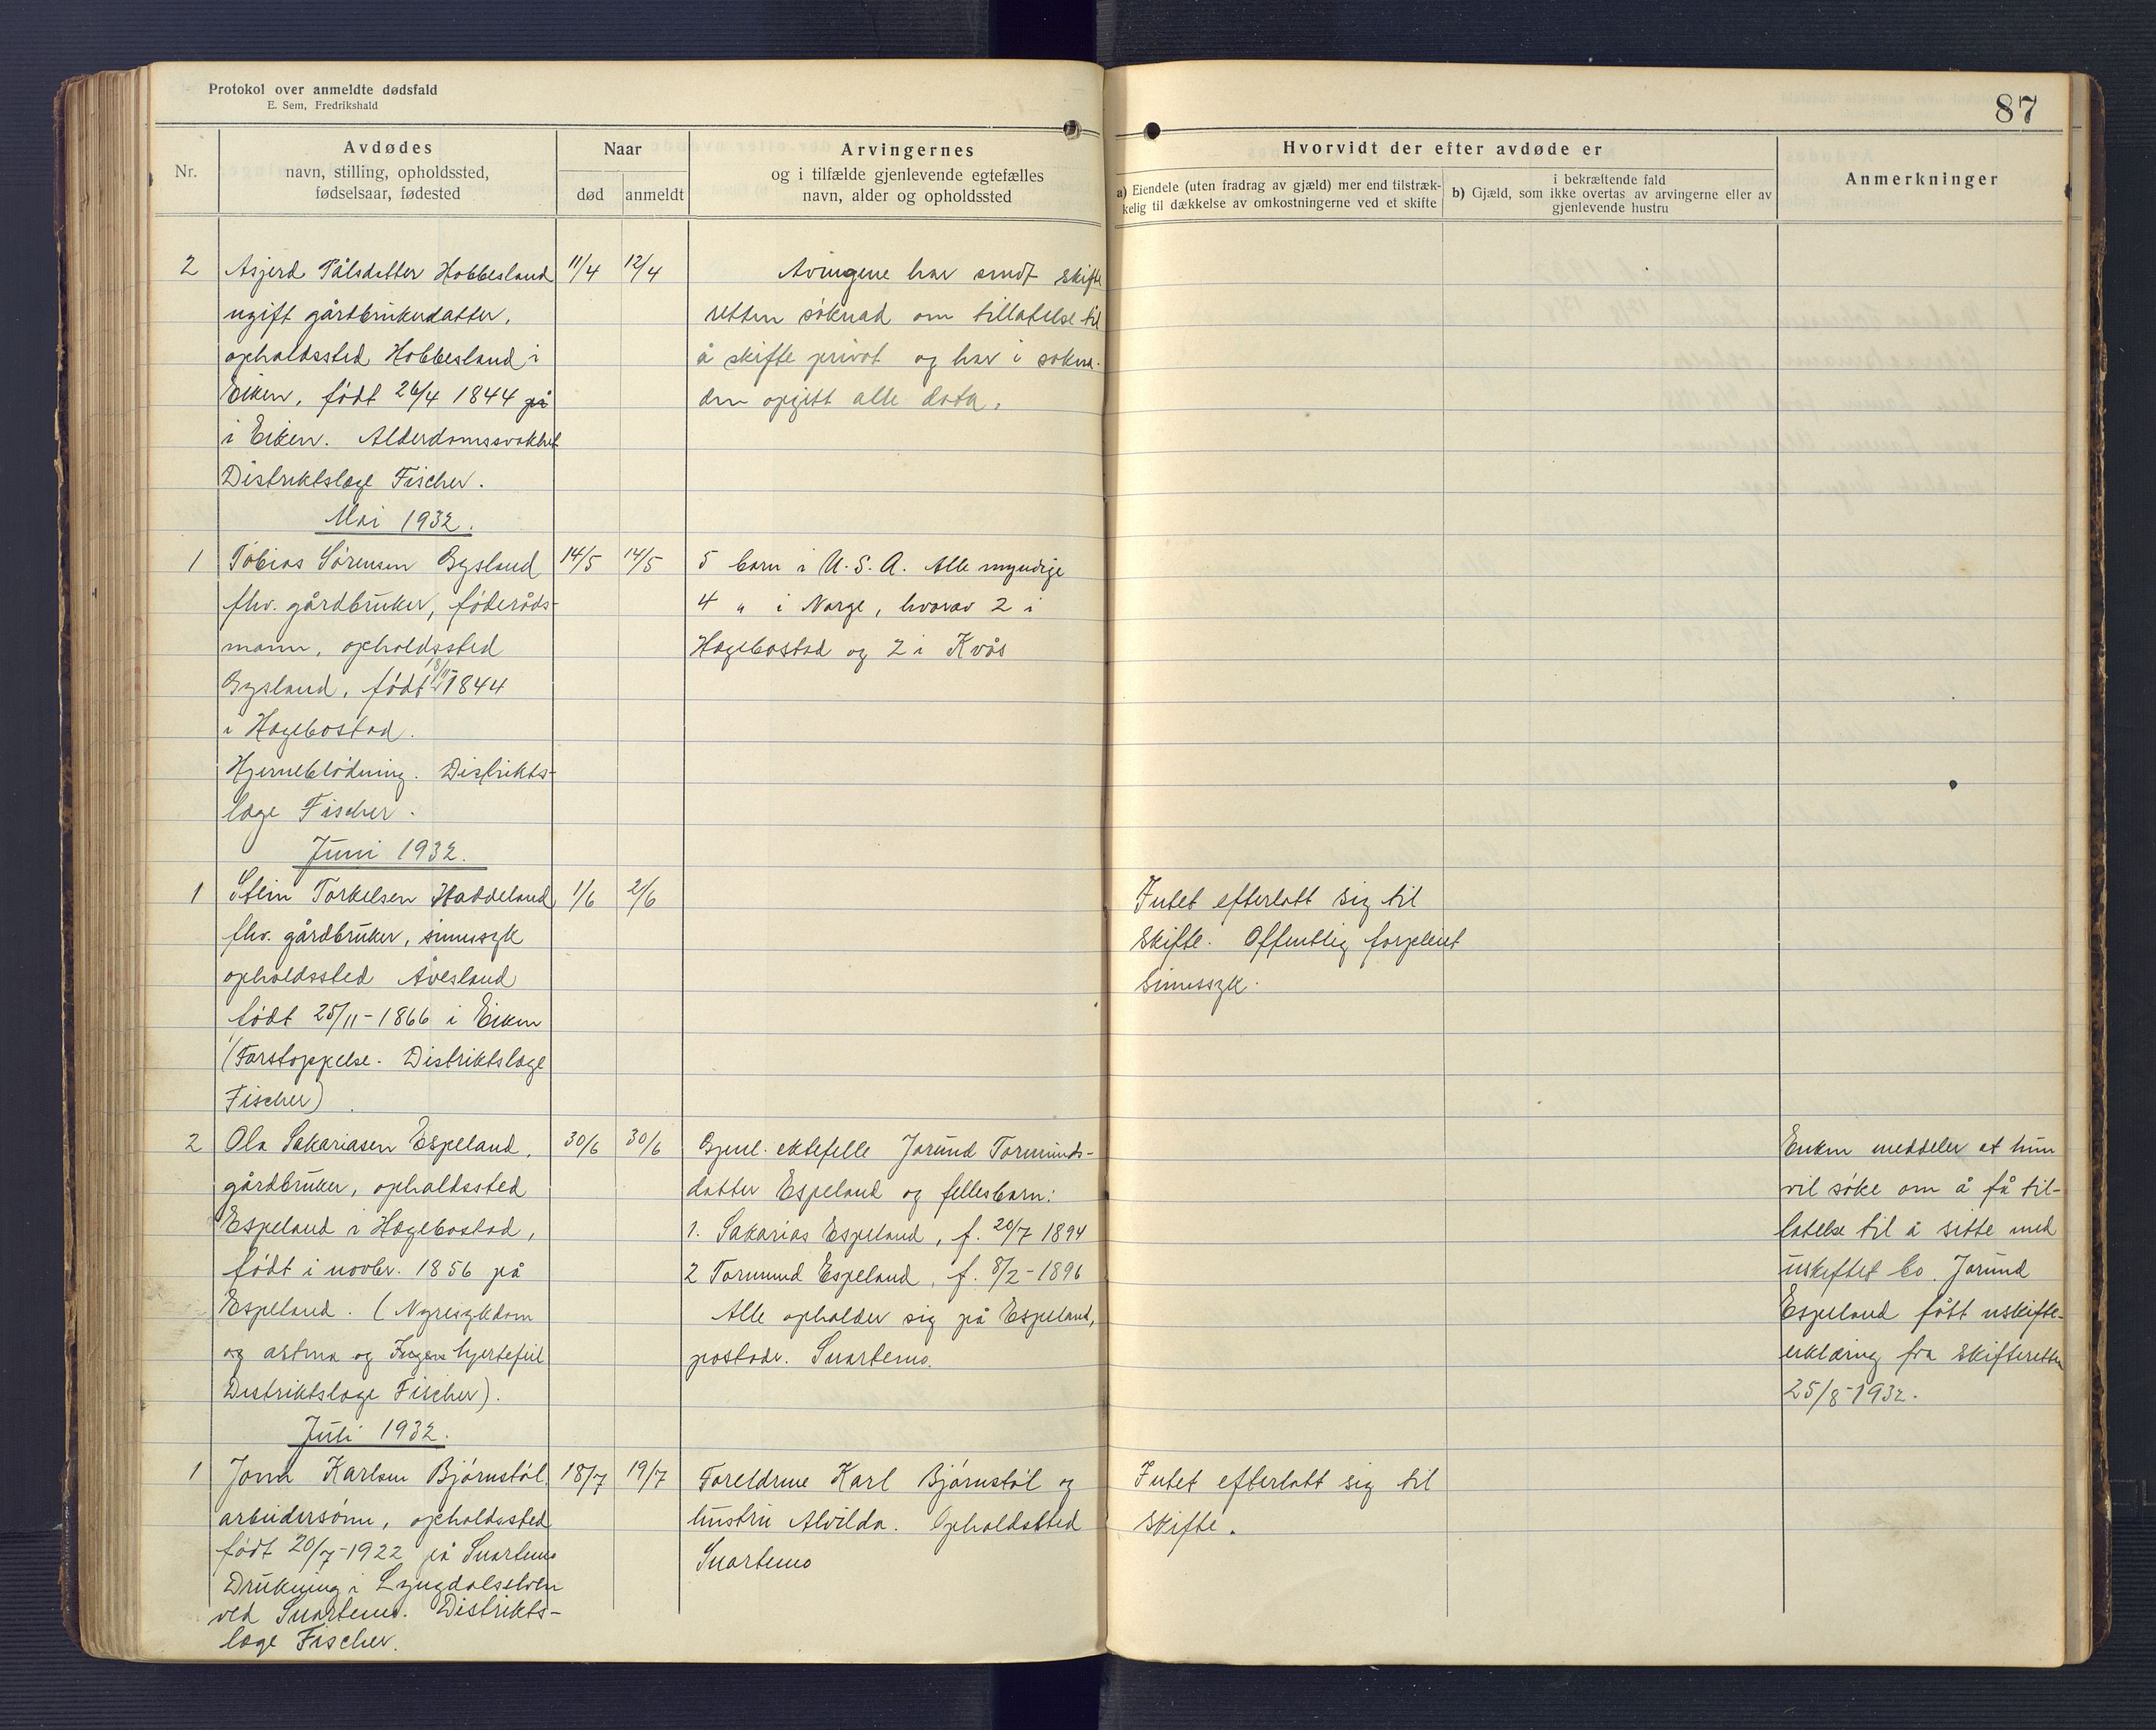 Protokol over anmeldte dødsfald
E. Sem, Fredrikshald
87
Nr.
Avdødes
navn, stilling, opholdssted,
fødselsaar, fødested
Naar
død
anmeldt
Arvingernes
og i tilfælde gjenlevende egtefælles
navn, alder og opholdssted
Hvorvidt der efter avdøde er
a) Eiendele (uten fradrag av gjæld) mer end tilstræk-
kelig til dækkelse av omkostningerne ved et skifte
i bekræftende fald
b) Gjæld, som ikke overtas av arvingerne eller av
gjenlevende hustru
Anmerkninger
2 Asjerd Pålsdatter Hobbesland 11/4 12/4
ugift gårdbrukerdatter,
opholdssted Hobbesland i
Eiken, født 26/4 1844 på
i Eiken. Alderdomssvakhet
Distriktslæge Fischer.
Arvingene har sendt skifte
retten søknad om tillatelse til
å skifte privat og har i søkna-
den opgitt alle data.
Mai 1932.
1 Tobias Sørensen Gysland 14/5 14/5
fhv. gårdbruker, føderåds-
mann, opholdssted
Gysland, født 1844
i Hægebostad.
Hjerneblødning. Distrikts-
læge Fischer.
5 barn i U.S.A. Alle myndige
4 " i Norge, hvorav 2 i
Hægebostad og 2 i Kvås
Juni 1932.
1 Stein Torkelsen Haddeland 1/6 2/6
fhv. gårdbruker, sinnssyk
opholdssted Åvesland
født 25/11-1866 i Eiken
(Forstoppelse. Distriktslæge
Fischer)
Intet efterlatt sig til
skifte. Offentlig forpleiet
sinnssyk.
2 Ola Sakariasen Espeland, 30/6 30/6
gårdbruker, opholdssted
Espeland i Hægebostad,
født i novbr. 1856 på
Espeland. (Nyresykdom
og astma og hjertefeil
Distriktslæge Fischer).
Gjenl. ektefelle Jorund Tormunds-
datter Espeland og fellesbarn:
1. Sakarias Espeland, f. 20/7 1894
2 Tormund Espeland, f. 8/2-1896
Alle opholder sig på Espeland,
postadr. Snartemo.
Enken meddeler at hun
vil søke om å få til-
latelse til å sitte med
uskiftet bo. Jorund
Espeland fått uskifte-
erklæring fra skifteretten
25/8-1932.
Juli 1932.
1 Jonn Karlsen Bjørnstøl, 18/7 19/7
arbeidersønn, opholdssted
født 20/7-1922 på Snartemo
Drukning i Lyngdalselven
ved Snartemo. Distrikts-
læge Fischer.
Foreldrene Karl Bjørnstøl og
hustru Alvilda. Opholdssted
Snartemo
Intet efterlatt sig til
skifte.